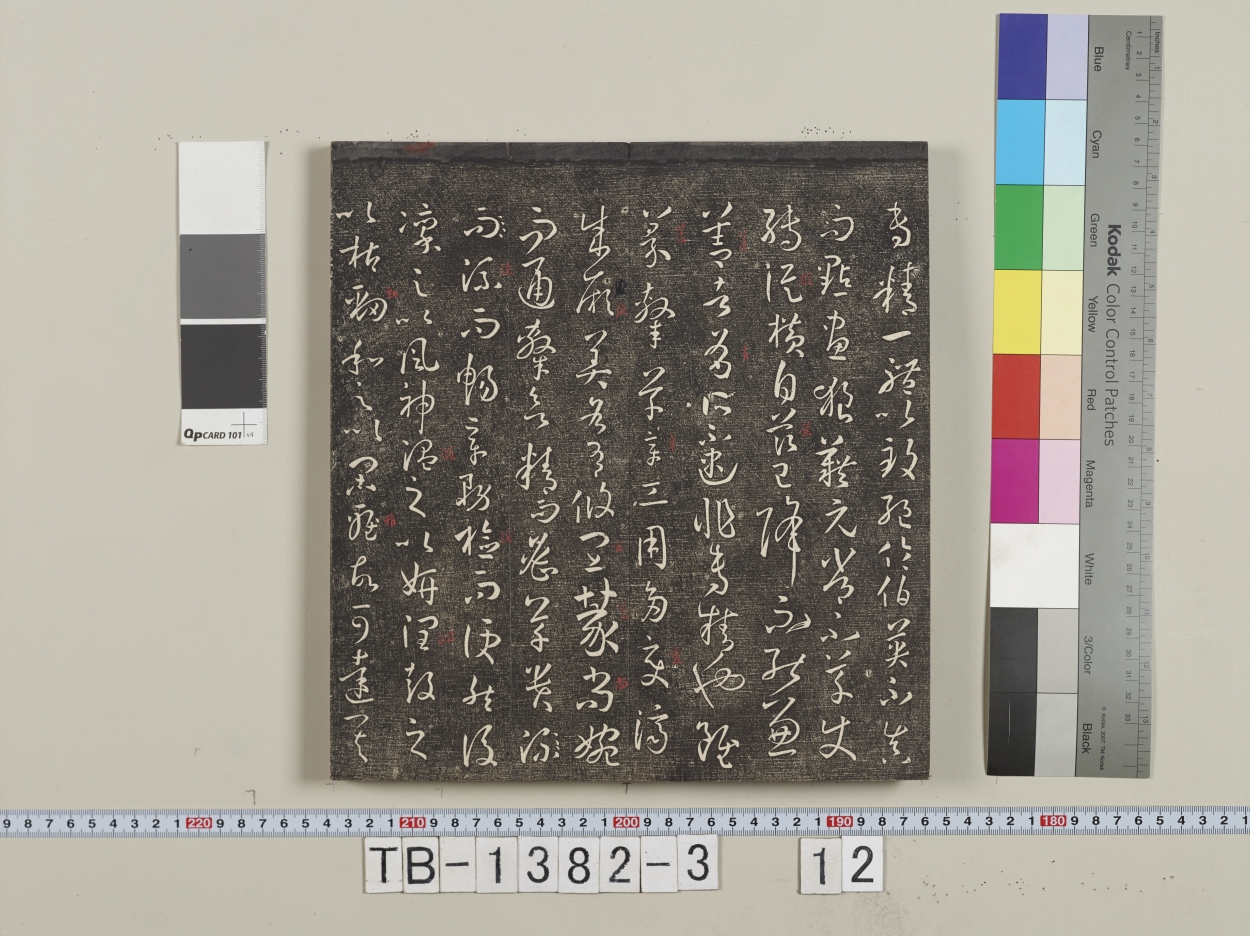 專精一體以致絕倫伯英不真
而點畫狼藉元常不草使
轉縱橫自茲已降不能兼
善者有所不逮非專精也雖
篆隸草章工用多變濟
成厥美各有攸宜篆尚婉
而通隸欲精而密草貴流
而流而暢章務檢而便然後
凜之以風神溫之以妍潤鼓之
以枯勁和之以閑雅故可達其
QPCARD 101 v4
Kodak Color Control Patches
Inches
Centimetres
Blue
Cyan
Green
Yellow
Red
Magenta
White
3/Color
Black
9 8 7 6 5 4 3 2 1 220 9 8 7 6 5 4 3 2 1 210 9 8 7 6 5 4 3 2 1 200 9 8 7 6 5 4 3 2 1 190 9 8 7 6 5 4 3 2 1 180 9 8 7 6 5 4 3 2 1
TB-1382-3 12